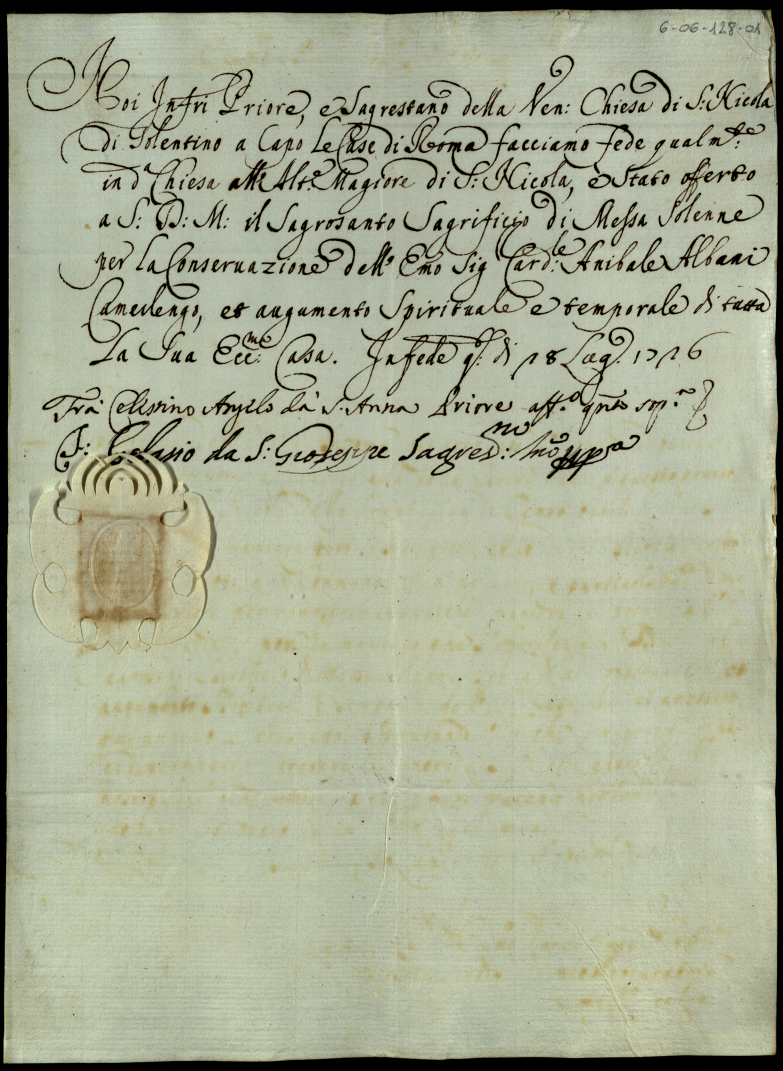 6-06-128-01
Noi Infri Priore, e Sagrestano della Ven: Chiesa di S: Nicola
di Tolentino a Capo Le Case di Roma facciamo fede qualm.te
in d.a Chiesa all'Alt.e Magiore di S: Nicola, è Stato offerto
a S: D: M: il Sagrosanto Sagrificio di Messa Solenne
per la Conservazione dell'Emo Sig Card:le Anibale Albani
Camerlengo, et augumento Spirituale e temporale di tutta
La Sua Ecc:ma Casa. In fede q. di 18 Lug. 1726
Fra Celestino Angelo da S. Anna Priore aff.o q.nto sop.a
F: Gelasio da S: Giuseppe Sagres:no